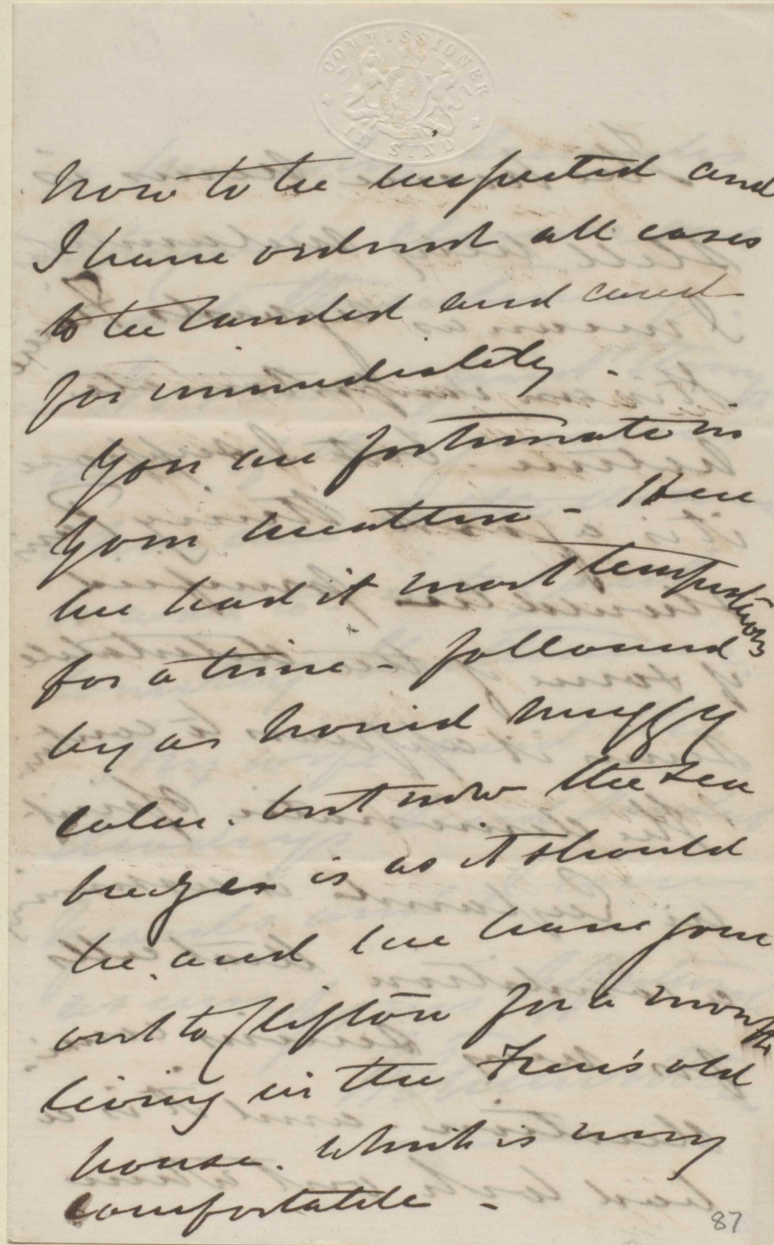 COMMISSIONER
IN SIND
now to be inspected and
I have ordered all cases
to be landed and cared
for immediately.
You are fortunate in
your weather - Here
we had it most tempestuous
for a time - followed
by as horrid muggy
calm. but now the sea
breezes is as it should
be. and we have gone
out to Clifton for a month
living in the Frere's old
house. which is very
comfortable -
87